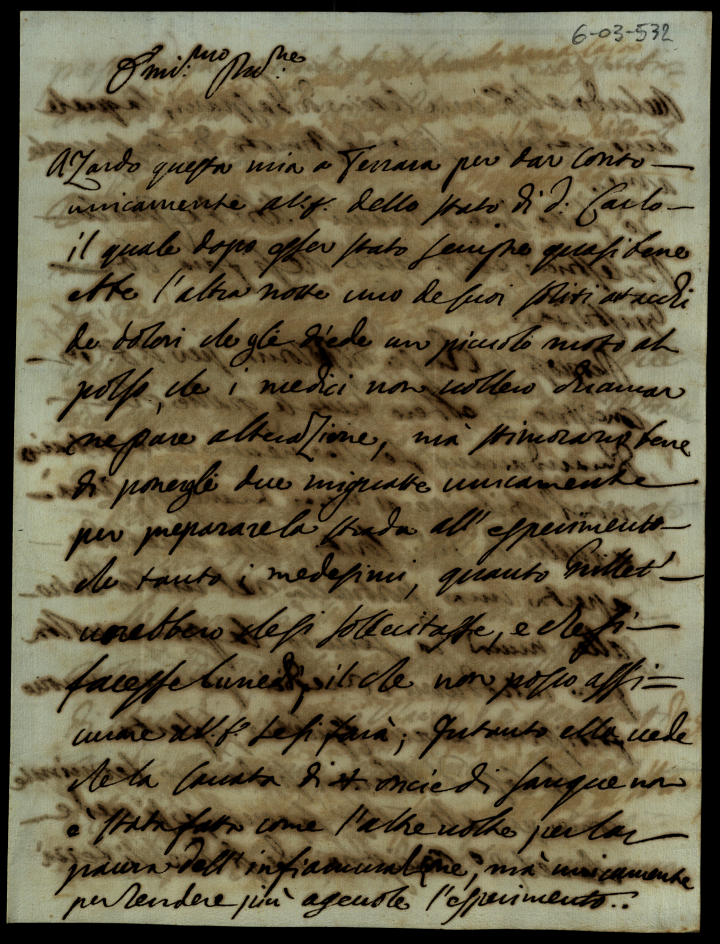 6-03-532
Emi.mo Pad.ne
Azardo questa mia a Ferrara per dar conto
unicamente a V.S. dello stato di d. Carlo
il quale dopo esser stato sempre quasi bene
ebbe l'altra notte uno de suoi soliti attacchi
de dolori che gle diede un piccolo moto al
polso, che i medici non vollero chiamar
nepare alterazione, mà stimorano bene
di ponergle due mignatte unicamente
per preparare la strada all'esperimento
che tanto i medesimi, quanto
vorebbero che si sollecitasse, e che si
facesse lunedì, il che non posso assi=
curare a V.S. se si farà; Intanto ella vede
che la cavata di 4. oncie di sangue non
e' stata fatta come l'altre volte per la
paura dell'infiamazione, mà unicamente
per rendere più agevole l'esperimento..